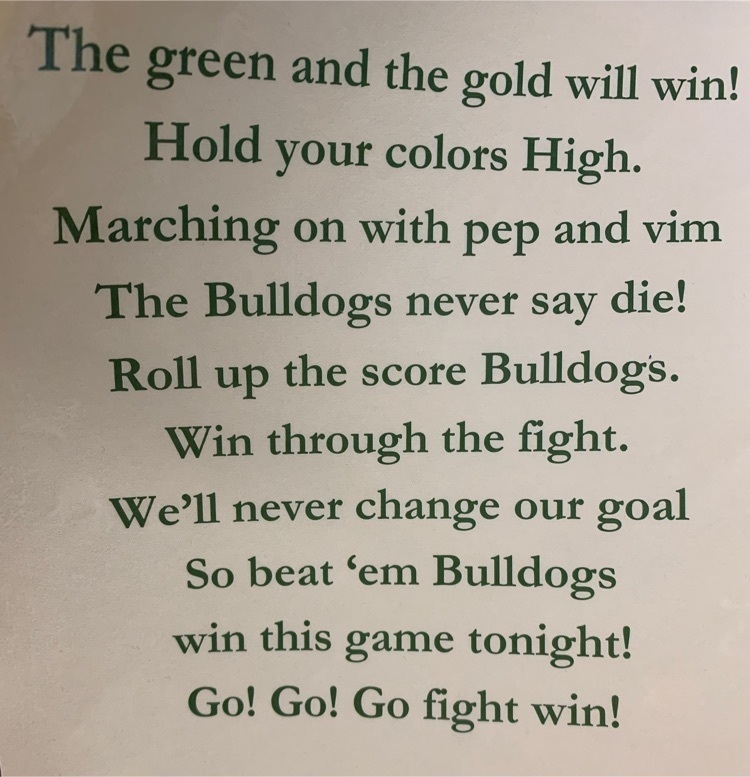 The green and the gold will win!
Hold your colors High.
Marching on with pep and vim
The Bulldogs never say die!
Roll up the score Bulldogs.
Win through the fight.
We’ll never change our goal
So beat ‘em Bulldogs
win this game tonight!
Go! Go! Go fight win!